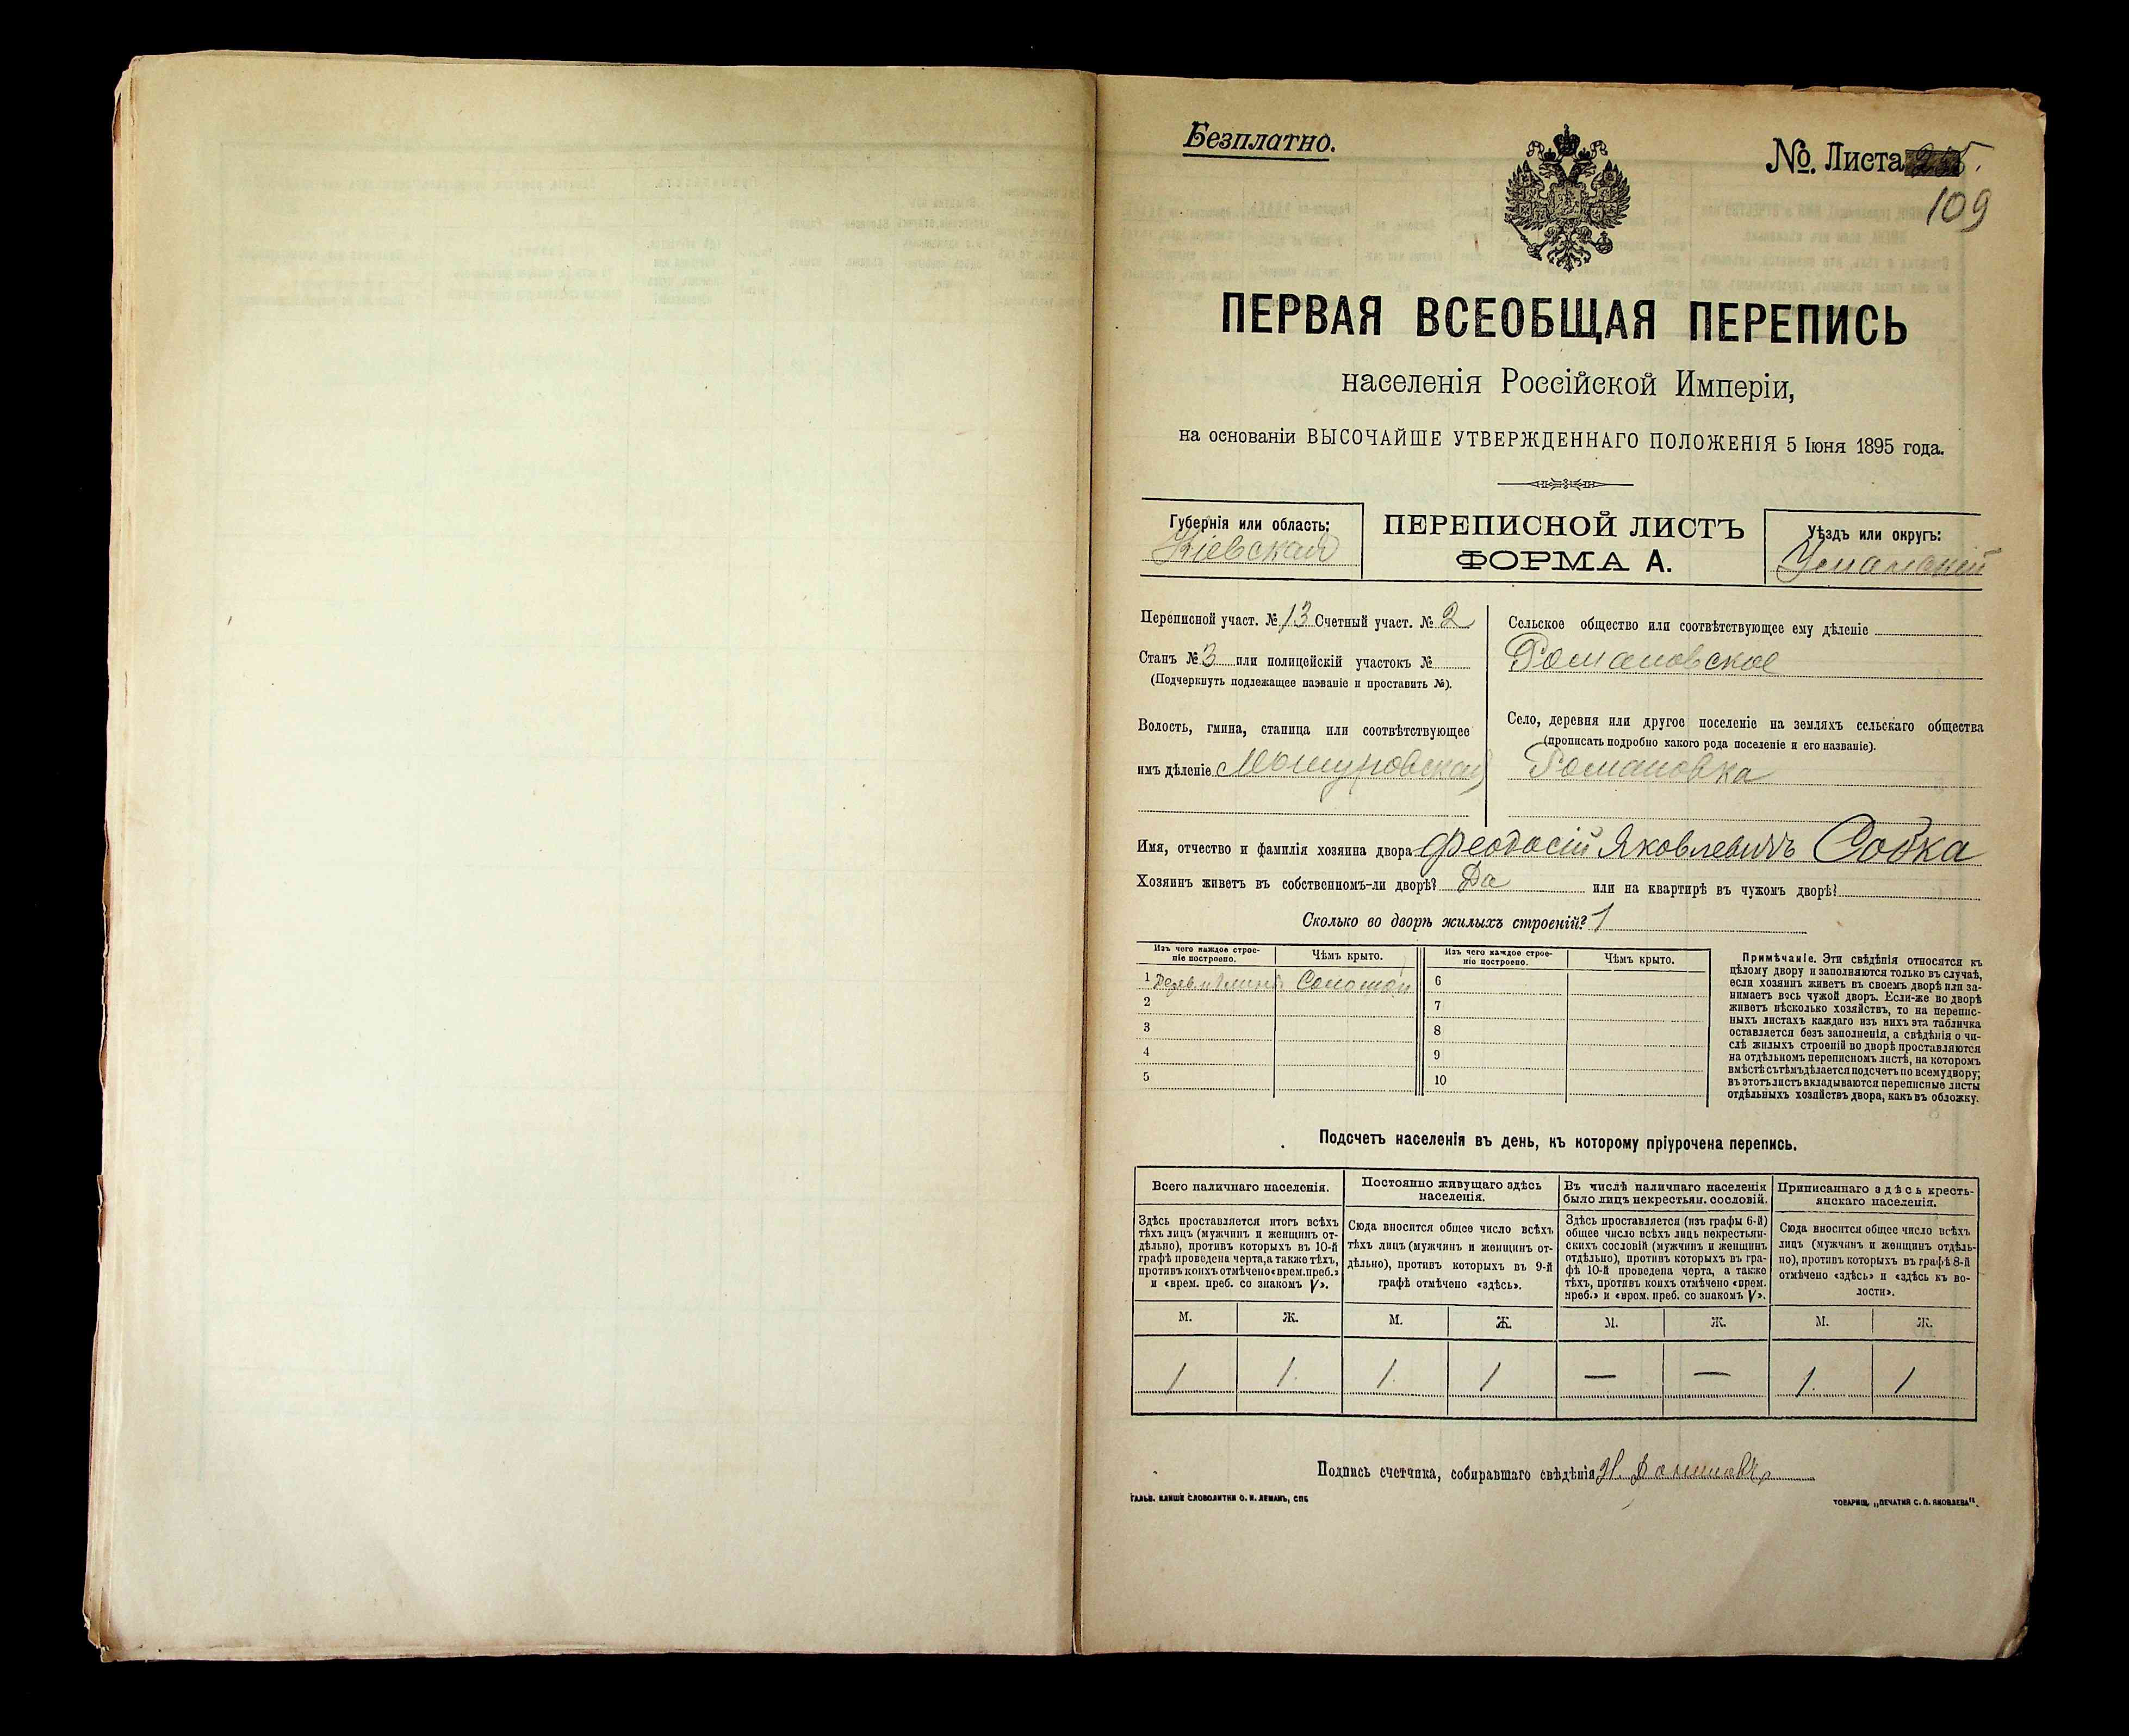 Безплатно.
№. Листа
109
ПЕРВАЯ ВСЕОБЩАЯ ПЕРЕПИСЬ
населенія Россійской Имперіи,
на основаніи ВЫСОЧАЙШЕ УТВЕРЖДЕННАГО ПОЛОЖЕНІЯ 5 Іюня 1895 года.
Губернія или область:
Кіевская
ПЕРЕПИСНОЙ ЛИСТЪ
ФОРМА А.
Уѣздъ или округъ:
Уманскій
Переписной участ. № 13 Счетный участ. № 2
Станъ № 3 или полицейскій участокъ №
(Подчеркнуть подлежащее названіе и проставить №).
Волость, гмина, станица или соотвѣтствующее
имъ дѣленіе Мошуровская
Сельское общество или соотвѣтствующее ему дѣленіе
Романовское
Село, деревня или другое поселеніе на земляхъ сельскаго общества
(прописать подробно какого рода поселеніе и его названіе).
Романовка
Имя, отчество и фамилія хозяина двора Феодосій Яковлевичъ Собка
Хозяинъ живетъ въ собственномъ-ли дворѣ? Да или на квартирѣ въ чужомъ дворѣ?
Сколько во дворѣ жилыхъ строеній? 1
Изъ чего каждое строе-
ніе построено.
Чѣмъ крыто.
Изъ чего каждое строе-
ніе построено.
Чѣмъ крыто.
1 Соломой 6
2 7
3 8
4 9
5 10
Примѣчаніе. Эти свѣдѣнія относятся къ
цѣлому двору и заполняются только въ случаѣ,
если хозяинъ живетъ въ своемъ дворѣ или за-
нимаетъ весь чужой дворъ. Если-же во дворѣ
живетъ нѣсколько хозяйствъ, то на перепис-
ныхъ листахъ каждаго изъ нихъ эта табличка
оставляется безъ заполненія, а свѣдѣнія о чи-
слѣ жилыхъ строеній во дворѣ проставляются
на отдѣльномъ переписномъ листѣ, на которомъ
вмѣстѣ съ тѣмъ дѣлается подсчетъ по всему двору;
въ этотъ листъ вкладываются переписные листы
отдѣльныхъ хозяйствъ двора, какъ въ обложку.
Подсчетъ населенія въ день, къ которому пріурочена перепись.
Всего наличнаго населенія.
Здѣсь проставляется итогъ всѣхъ
тѣхъ лицъ (мужчинъ и женщинъ от-
дѣльно), противъ которыхъ въ 10-й
графѣ проведена черта, а также тѣхъ,
противъ коихъ отмѣчено «врем. преб.»
и «врем. преб. со знакомъ V».
Постоянно живущаго здѣсь
населенія.
Сюда вносится общее число всѣхъ
тѣхъ лицъ (мужчинъ и женщинъ от-
дѣльно), противъ которыхъ въ 9-й
графѣ отмѣчено «здѣсь».
Въ числѣ наличнаго населенія
было лицъ некрестьян. сословій.
Здѣсь проставляется (изъ графы 6-й)
общее число всѣхъ лицъ некрестьян-
скихъ сословій (мужчинъ и женщинъ
отдѣльно), противъ которыхъ въ гра-
фѣ 10-й проведена черта, а также
тѣхъ, противъ коихъ отмѣчено «врем.
преб.» и «врем. преб. со знакомъ V».
Приписаннаго здѣсь кресть-
янскаго населенія.
Сюда вносится общее число всѣхъ
лицъ (мужчинъ и женщинъ отдѣль-
но), противъ которыхъ въ графѣ 8-й
отмѣчено «здѣсь» и «здѣсь къ во-
лости».
М. Ж. М. Ж. М. Ж. М. Ж.
1 1 1 1 — — 1 1
Подпись счетчика, собиравшаго свѣдѣнія
ГАЛЬВ. КЛИШЕ СЛОВОЛИТНИ О. И. ЛЕМАНЪ, СПБ
ТОВАРИЩ. „ПЕЧАТНЯ С. П. ЯКОВЛЕВА“.